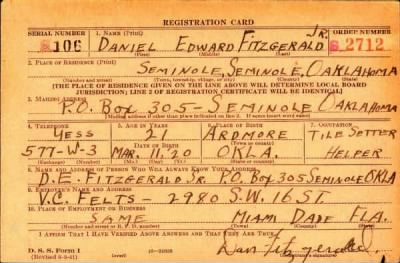 REGISTRATION CARD
SERIAL NUMBER 1. NAME (Print) ORDER NUMBER
S 106 DANIEL EDWARD FITZGERALD JR. S 2712
(First) (Middle) (Last)
2. PLACE OF RESIDENCE (Print)
SEMINOLE, SEMINOLE, OAKLAHOMA
(Number and street) (Town, township, village, or city) (County) (State)
[THE PLACE OF RESIDENCE GIVEN ON THE LINE ABOVE WILL DETERMINE LOCAL BOARD
JURISDICTION; LINE 2 OF REGISTRATION CERTIFICATE WILL BE IDENTICAL]
3. MAILING ADDRESS
P.O. BOX 305 - SEMINOLE OAKLAHOMA
[Mailing address if other than place indicated on line 2. If same insert word same]
4. TELEPHONE 5. AGE IN YEARS 6. PLACE OF BIRTH 7. OCCUPATION
YESS 21 ARDMORE TILE SETTER
DATE OF BIRTH
577-W-3 MAR. 11, 20 OKLA. HELPER
8. NAME AND ADDRESS OF PERSON WHO WILL ALWAYS KNOW YOUR ADDRESS
D.E. FITZGERALD SR. P.O. BOX 305 SEMINOLE OKLA
9. EMPLOYER'S NAME AND ADDRESS
V.C. FELTS - 2980 S.W. 16 ST.
10. PLACE OF EMPLOYMENT OR BUSINESS
SAME MIAMI DADE FLA.
(Number and street or R. F. D. number) (Town) (County) (State)
I AFFIRM THAT I HAVE VERIFIED ABOVE ANSWERS AND THAT THEY ARE TRUE.
D. S. S. Form 1 Dan Fitzgerald